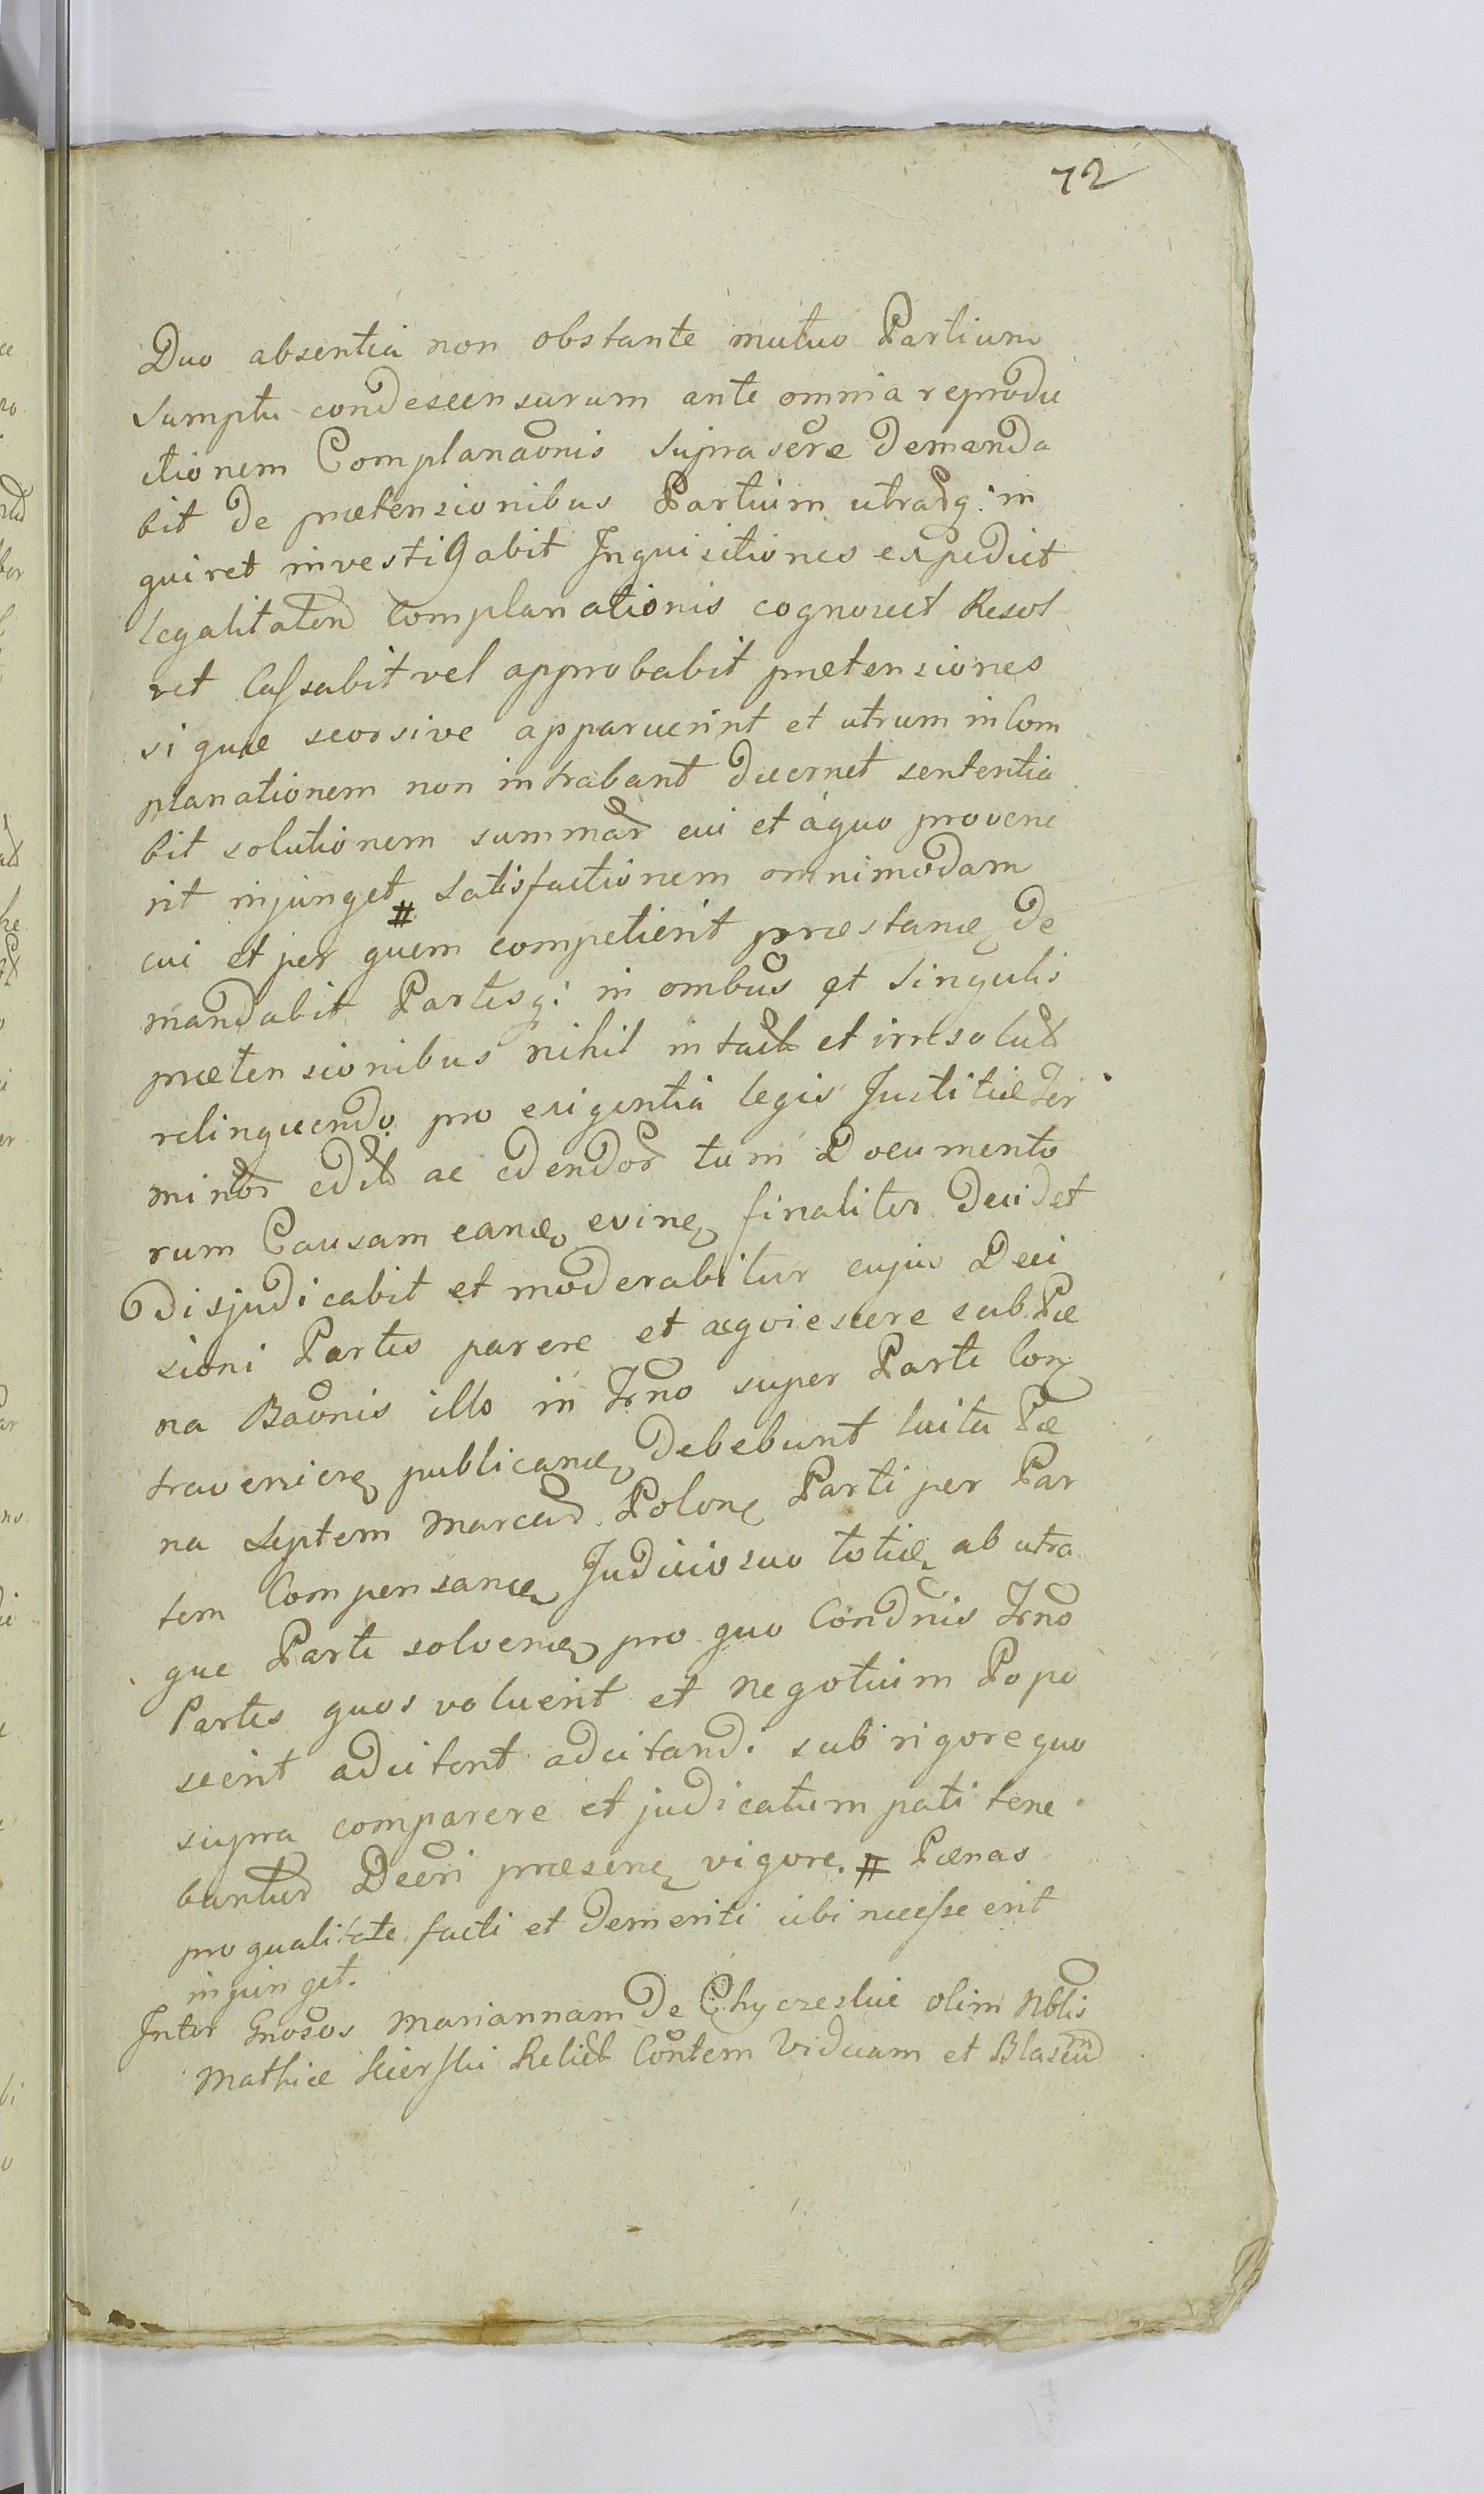 72
Duo absentia non obstante mutuo Partium
sumptu condescensurum ante omnia reprodu
ctionem Complanaonis suprascre demanda
bit de prætensionibus Partium utrarq: in
quiret investigabit Inquisitiones expediet
legalitatem Complanationis cognoscet Resol
vet Cassabit vel approbabit prætensiones
si quæ seorsive apparuerint et utrum in Com
planationem non intrabant decernet sententia
bit solutionem summar cui et à quo provene
rit injunget # satisfactionem omnimodam
cui et per quem competierit præstanæ de
mandabit Partesq: in ombus et singulis
prætensionibus nihil intact et irresolut
relinquendo pro exigentia legis Justitiæ Ter
minor edit ac edendor tum Documento
rum Causam eanæ evinæ finaliter decidet
disjudicabit et moderabitur cujus Deci
sioni Partes parere et acquiescere sub Pæ
na Baonis illo in Trno super Parte Con
traveniene publicanæ debebunt luita Pæ
na septem marcar Polone Parti per Par
tem Compensanæ Judicio suo totiæ ab utra
que Parte solvenæ pro quo Condnis Trno
Partes quos voluerit et negotium Popo
scerit adcitent adcitandi sub rigore quo
supra comparere et judicatum pati tene
buntur Decri præsene vigore. # Pænas
pro qualitate facti et demeriti ubi necesse erit
injunget.
Inter Gnosos Mariannam de Chyczeskie olim Nblis
Mathiæ Relict Contem Viduam et Blasium